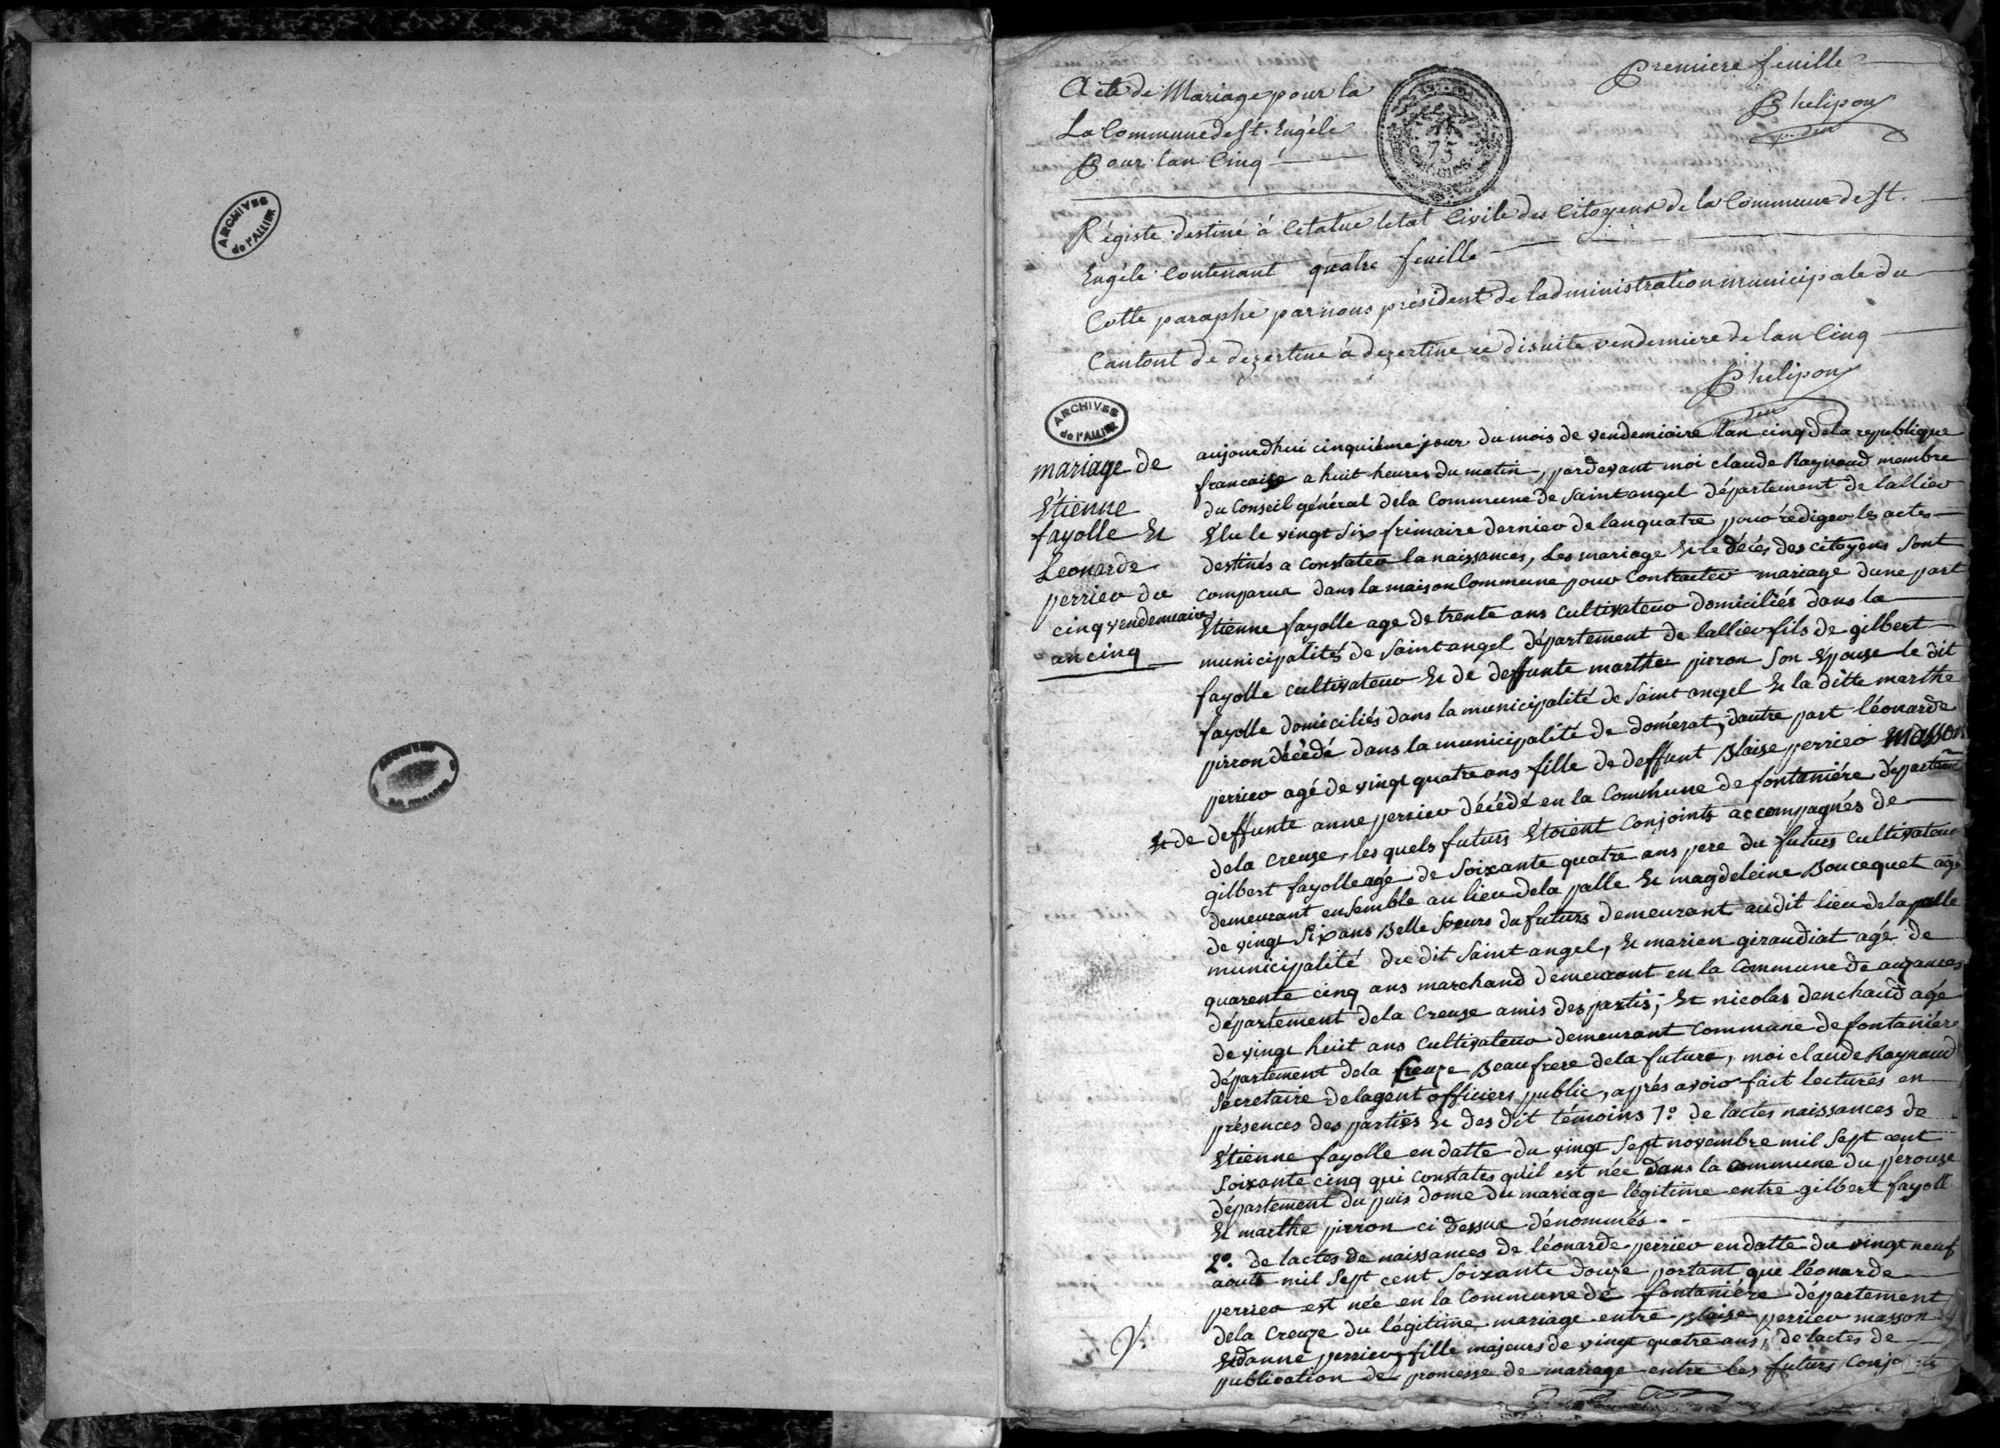 ARCHIVES
de l'ALLIER
premiere feuille
Phelipon
Acte de Mariage pour la
La Commune de St. Engéle
Pour lan Cinq
75
CENTIMES
Régiste destiné á Cetatue letat Civile des Citoyens de la Commune de St.
Engéle Contenant quatre feuille
Cotte paraphé par nous président de ladministration municipale du
Cantont de dezertine á dezertine ce disuite vendemiere de lan Cinq
Phelipon
ARCHIVES
de l'ALLIER
mariage de
Etienne
fayolle Et
Leonarde
perrier du
cinq vendemiaire
an cinq
aujourdhui cinquiéme jour du mois de vendemiaire lan cinq dela republique
francaise a huit heures du matin, pardevant moi claude Raynaud membre
du Conseil général dela Commune de Saint angel département de lallier
Elu le vingt Six frimaire dernier de lan quatre pour rédiger les actes
destinés a constater la naissances, Les mariage Et le décés des citoyens Sont
comparue dans la maison Commune pour Contracter mariage dune part
Etienne fayolle age de trente ans cultivateur domiciliés dans la
municipalités de Saint angel département de lallier fils de gilbert
fayolle cultivateur Et de deffunte marthe pirron Son Epouse le dit
fayolle domiciliés dans la municipalité de Saint angel Et la ditte marthe
pirron décédé dans la municipalité de domérat, dautre part léonarde
perrier agé de vingt quatre ans fille de deffunt Blaise perrier masson
Et de deffunte anne perrier décédé en la Commune de fontaniére départemt
dela Creuse, les quels futurs Etoient Conjoints accompagnés de
gilbert fayolle agé de Soixante quatre ans pere du futurs cultivateur
demeurant ensemble au lieu dela palle Et magdeleine Boucequet agé
de vingt Six ans Belle Soeurs du futurs demeurant audit lieu dela palle
municipalité du dit Saint angel, Et marien giraudiat agé de
quarente cinq ans marchand demeurant en la Commune de auzances
département dela Creuse amis des partis; Et nicolas denchaud agé
de vingt huit ans cultivateur demeurant Commune de fontaniére
département dela Creuze Beaufrere dela future, moi claude Raynaud
Secretaire delagent officiers public, aprés avoir fait lectures en
présences des parties Et des dit témoins 1º. de lactes naissances de
Etienne fayolle en datte du vingt Sept novembre mil Sept cent
Soixante cinq qui Constates quil est née dans la Commune du pérouze
département du puis dome du mariage légitime entre gilbert fayoll
Et marthe pirron ci dessue dénommés.
2º. de lactes de naissances de léonarde perrier en datte du vingt neuf
aoute mil Sept cent Soixante douze portant que léonarde
perrier est née en la Commune de fontaniére département
dela Creuze du légitime mariage entre Blaise perrier masson
Et danne perrier, fille majeurs de vingt quatre ans, de lactes de
publication de promesse de mariage entre les futurs Conjoints